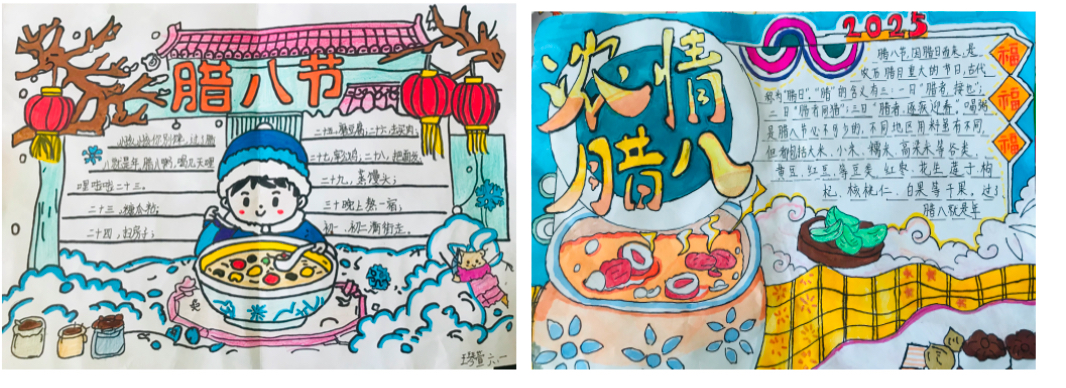 腊八节
小孩小孩你别馋，过了腊
八就是年，腊八粥，喝几天哩
哩啦啦二十三。
二十三，糖瓜粘；
二十四，扫房子；
二十五，磨豆腐；二十六，去买肉；
二十七，宰公鸡；二十八，把面发
二十九，蒸馒头；
三十晚上熬一宿；
初一、初二满街走。
六.一
浓情
腊八
2025
福
福
福
腊八节,因腊日而来,是
农历腊月重大的节日,古代
称为"腊日"."腊"的含义有三:一日"腊者,接也";
二日"腊者同猎";三日"腊者,逐疫迎春".喝粥
是腊八节必不可少的,不同地区用料虽有不同,
但都包括大米、小米、糯米、高粱米等谷类,
黄豆、红豆、等豆类,红枣、花生、莲子、枸
杞、核桃仁、白果等干果。过了
腊八就是年